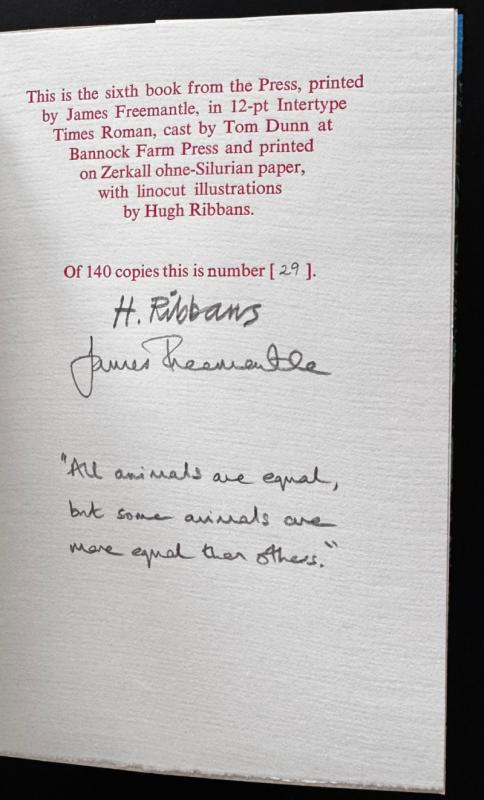 This is the sixth book from the Press, printed
by James Freemantle, in 12-pt Intertype
Times Roman, cast by Tom Dunn at
Bannock Farm Press and printed
on Zerkall ohne-Silurian paper,
with linocut illustrations
by Hugh Ribbans.
Of 140 copies this is number [ 29 ].
H. Ribbans
James Freemantle
"All animals are equal,
but some animals are
more equal than others."